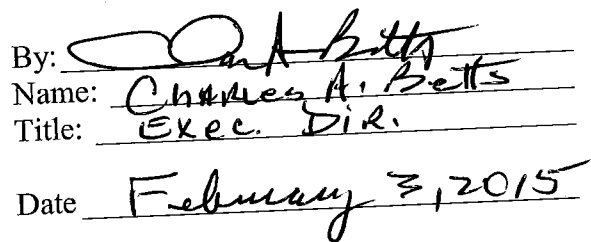 By:
Name: Charles A. Betts
Title: Exec. Dir.
Date February 3, 2015